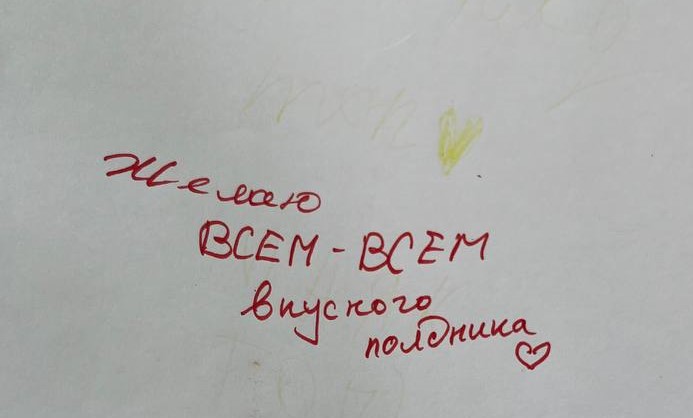 Желаю
ВСЕМ - ВСЕМ
вкусного
полдника